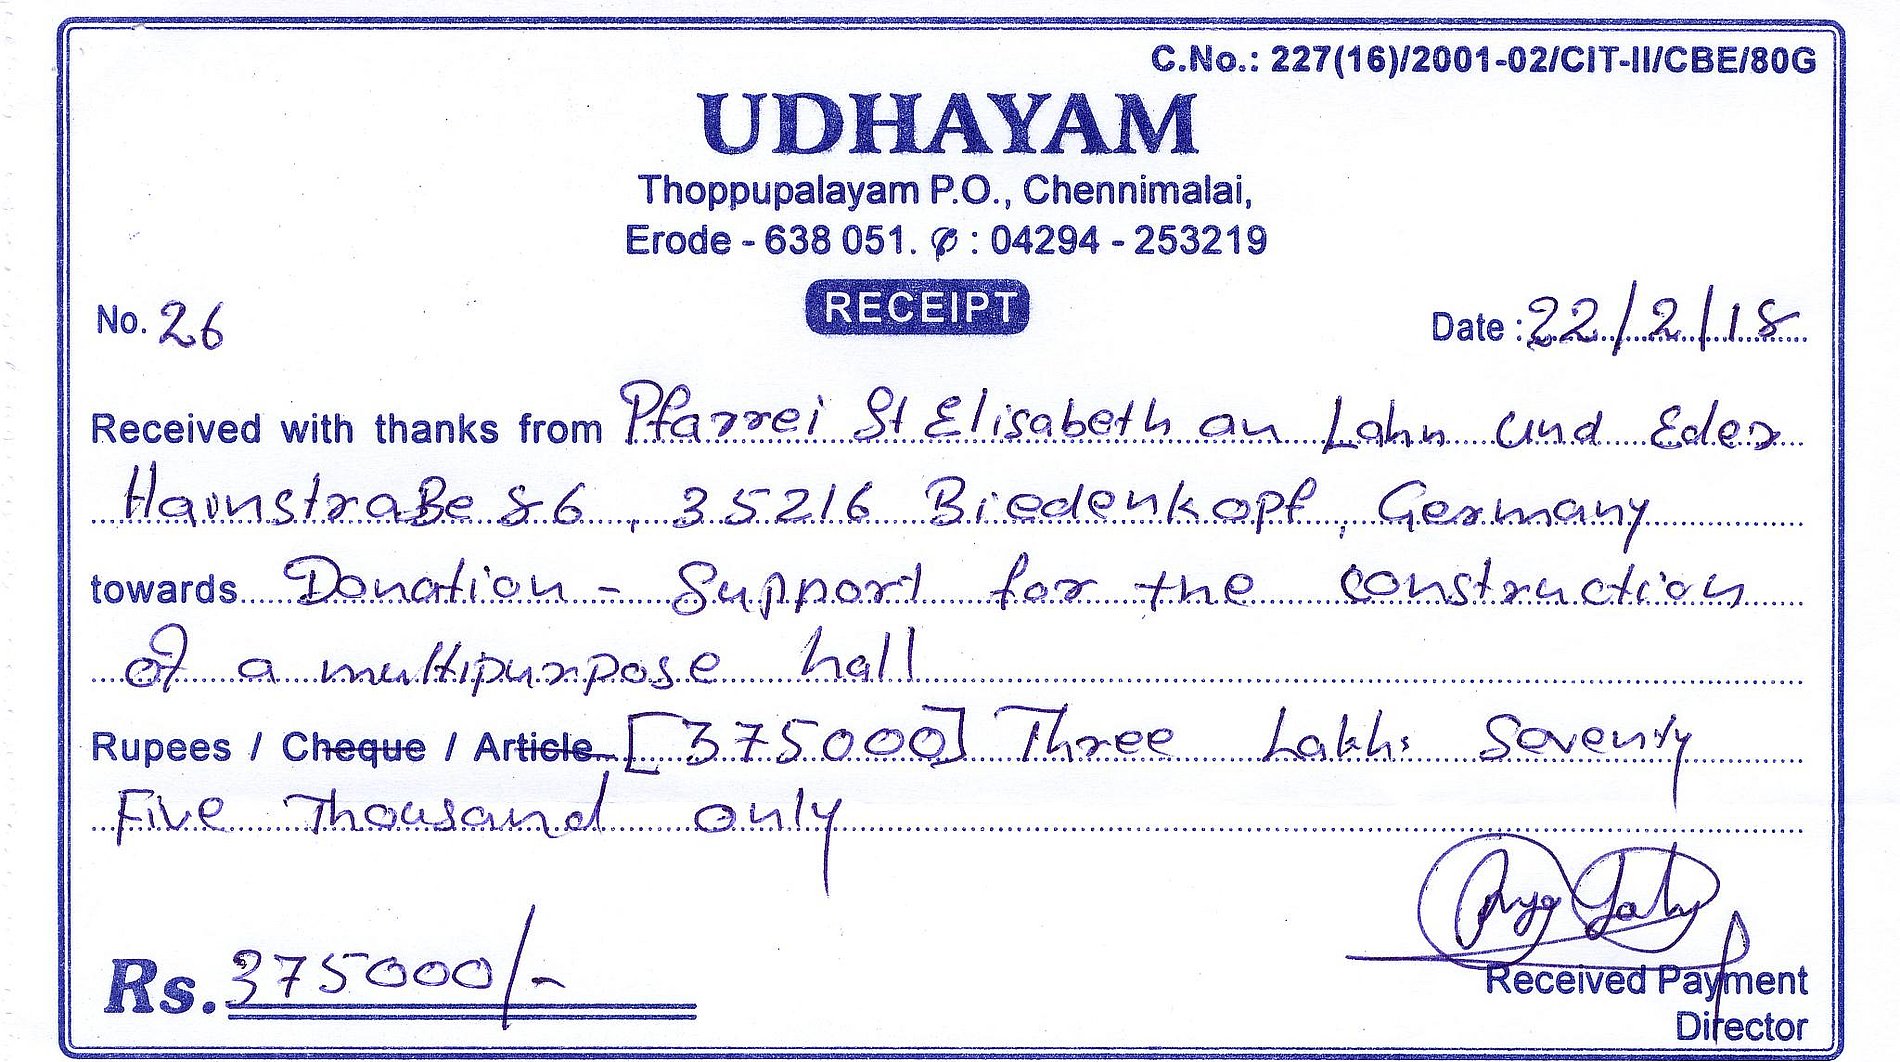 C.No.: 227(16)/2001-02/CIT-II/CBE/80G
UDHAYAM
Thoppupalayam P.O., Chennimalai,
Erode - 638 051. ✆ : 04294 - 253219
No. 26 RECEIPT Date : 22/2/18
Received with thanks from Pfarrei St Elisabeth an Lahn und Eder
Hainstraße 86, 35216 Biedenkopf, Germany
towards Donation - Support for the construction
of a multipurpose hall
Rupees / Cheque / Article [375000] Three Lakhs Seventy
Five Thousand only
Rs. 375000/-
Received Payment
Director